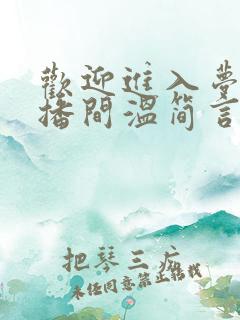 歡迎進入夢
播間溫简言
把琴三疚
未经同意禁止转载